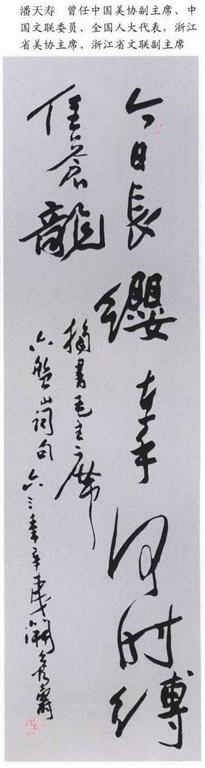 潘天寿 曾任中国美协副主席、中
国文联委员、全国人大代表，浙江
省美协主席、浙江省文联副主席
今日長纓在手何時縛
住蒼龍
摘書毛主席
六盤山詞句 六三年辛夷開 壽